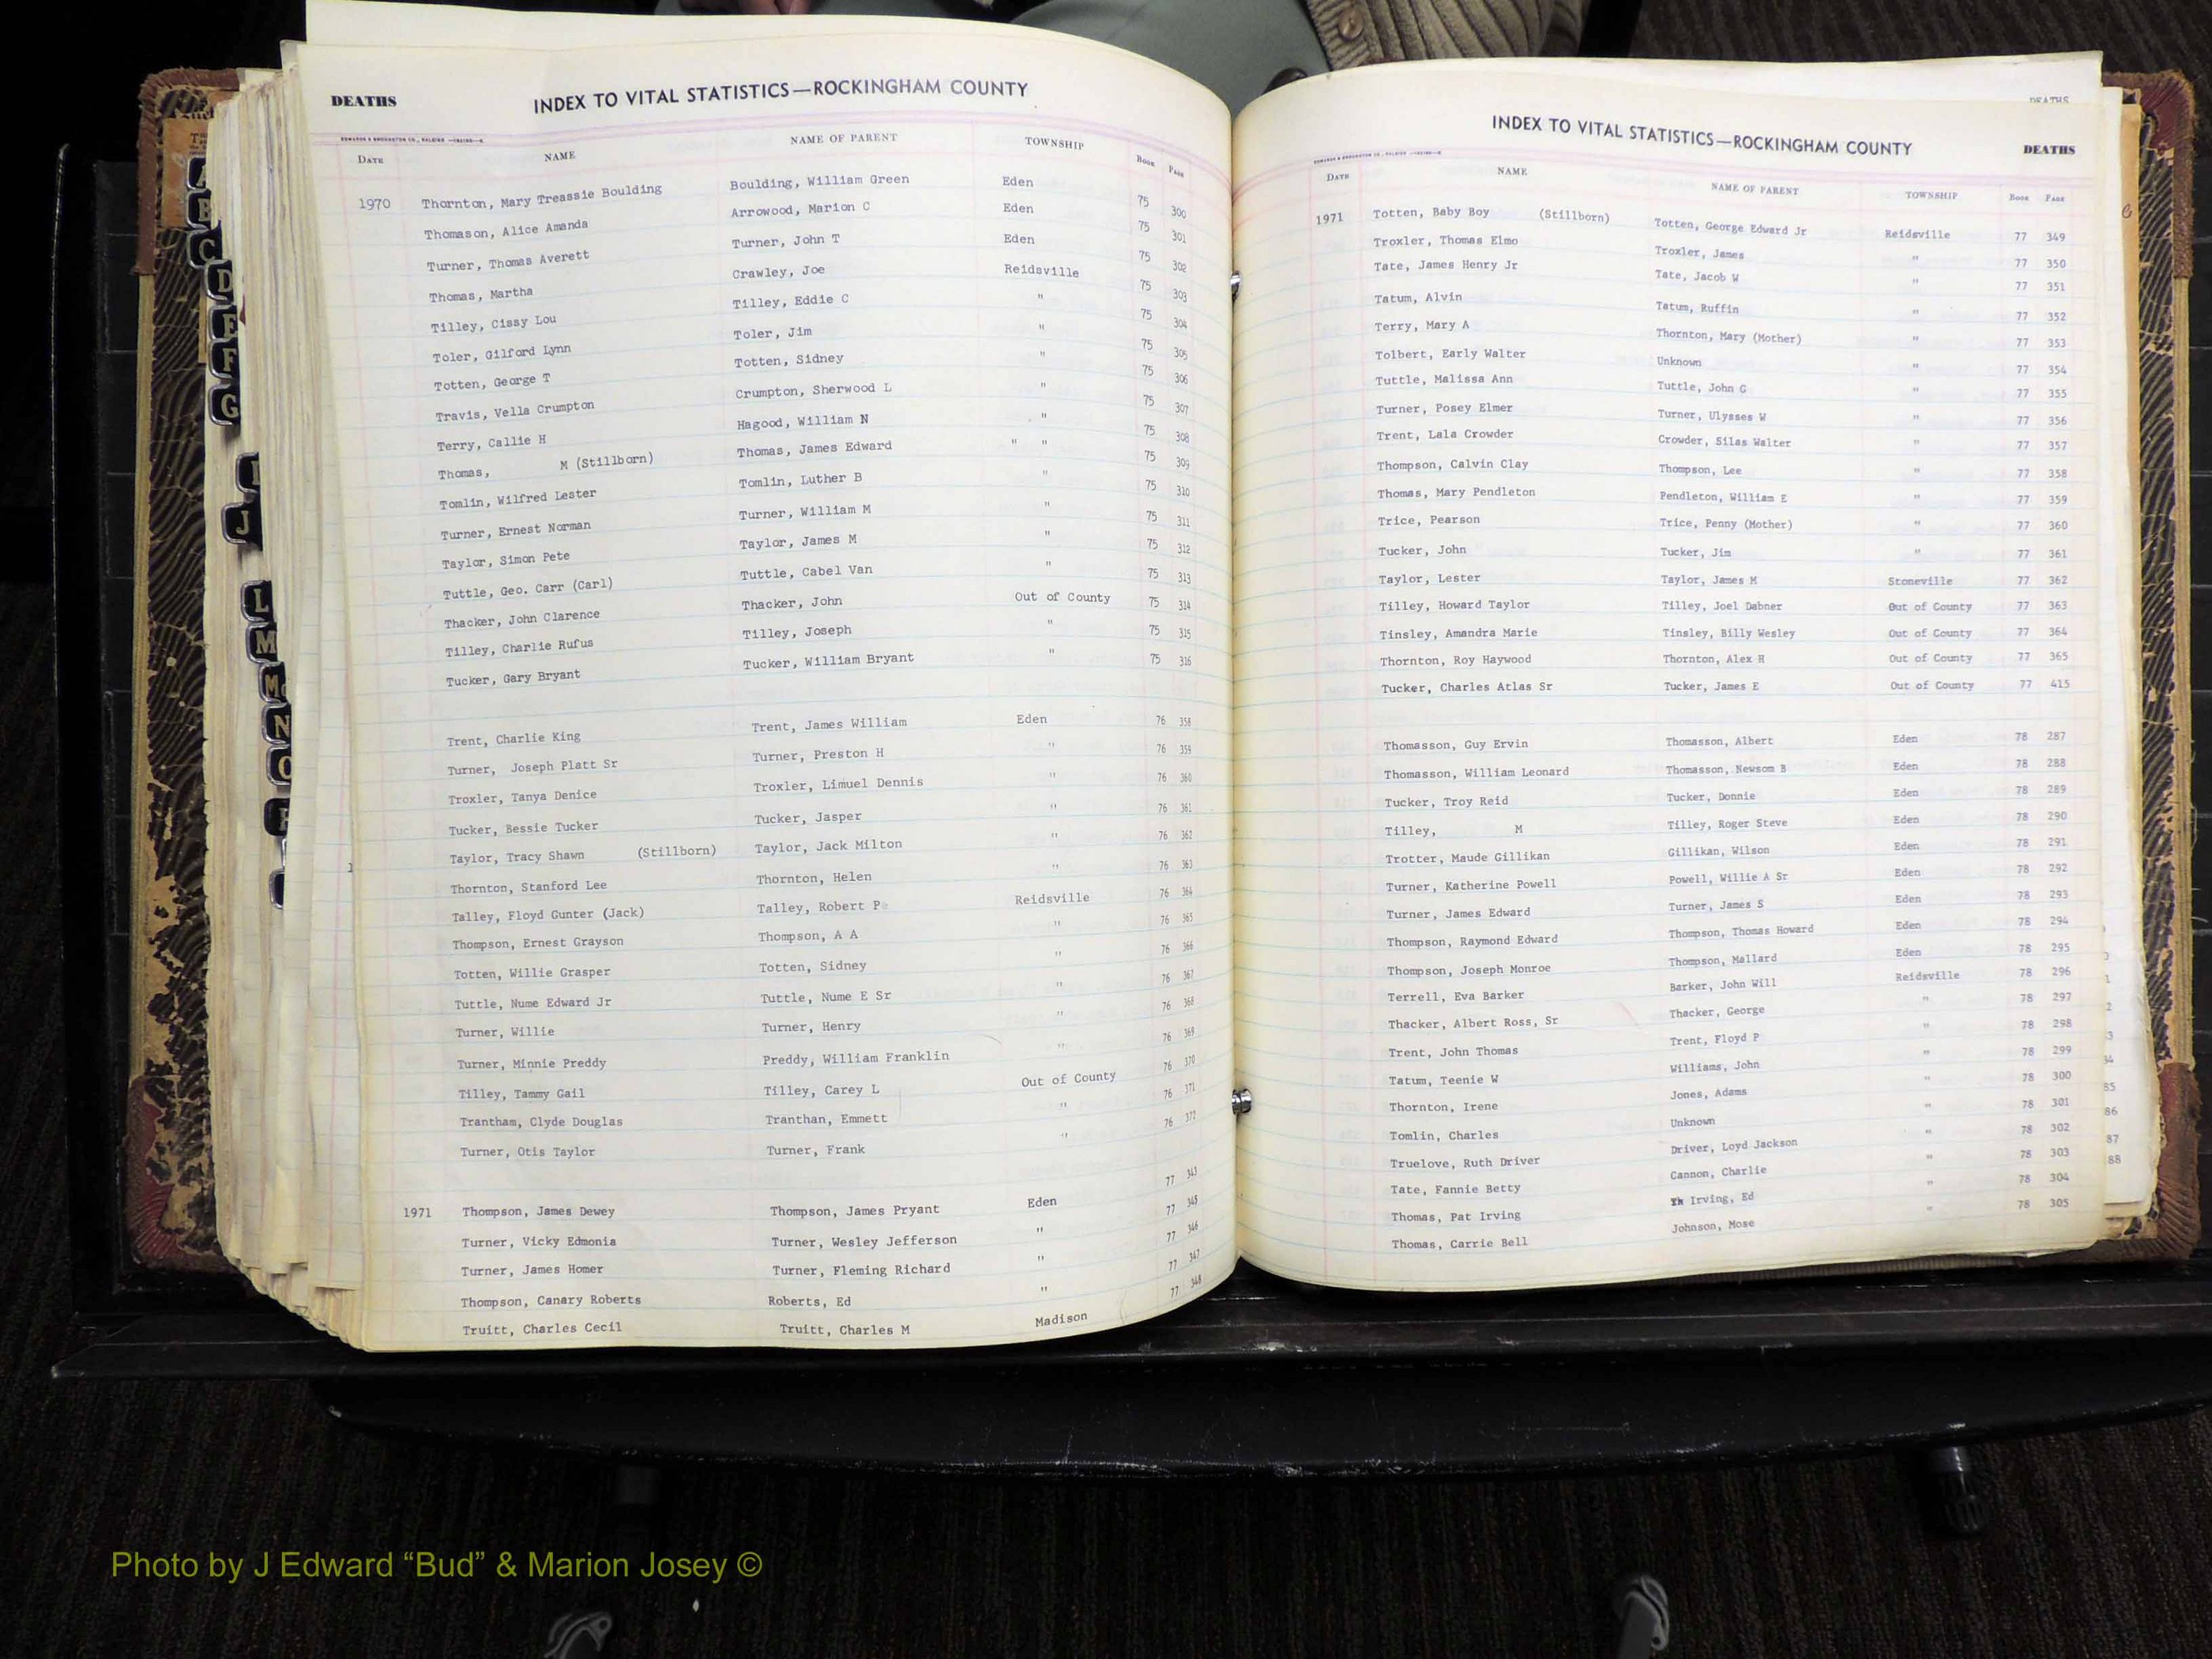 DEATHS
INDEX TO VITAL STATISTICS—ROCKINGHAM COUNTY
DATE NAME NAME OF PARENT TOWNSHIP BOOK PAGE
1970 Thornton, Mary Treassie Boulding Boulding, William Green Eden 75 300
Thomason, Alice Amanda Arrowood, Marion C Eden 75 301
Turner, Thomas Averett Turner, John T Eden 75 302
Thomas, Martha Crawley, Joe Reidsville 75 303
Tilley, Cissy Lou Tilley, Eddie C " 75 304
Toler, Gilford Lynn Toler, Jim " 75 305
Totten, George T Totten, Sidney " 75 306
Travis, Vella Crumpton Crumpton, Sherwood L " 75 307
Terry, Callie H Hagood, William N " 75 308
Thomas, M (Stillborn) Thomas, James Edward " " 75 309
Tomlin, Wilfred Lester Tomlin, Luther B " 75 310
Turner, Ernest Norman Turner, William M " 75 311
Taylor, Simon Pete Taylor, James M " 75 312
Tuttle, Geo. Carr (Carl) Tuttle, Cabel Van " 75 313
Thacker, John Clarence Thacker, John Out of County 75 314
Tilley, Charlie Rufus Tilley, Joseph " 75 315
Tucker, Gary Bryant Tucker, William Bryant " 75 316
Trent, Charlie King Trent, James William Eden 76 358
Turner, Joseph Platt Sr Turner, Preston H " 76 359
Troxler, Tanya Denice Troxler, Limuel Dennis " 76 360
Tucker, Bessie Tucker Tucker, Jasper " 76 361
Taylor, Tracy Shawn (Stillborn) Taylor, Jack Milton " 76 362
Thornton, Stanford Lee Thornton, Helen " 76 363
Talley, Floyd Gunter (Jack) Talley, Robert P Reidsville 76 364
Thompson, Ernest Grayson Thompson, A A " 76 365
Totten, Willie Grasper Totten, Sidney " 76 366
Tuttle, Nume Edward Jr Tuttle, Nume E Sr " 76 367
Turner, Willie Turner, Henry " 76 368
Turner, Minnie Preddy Preddy, William Franklin " 76 369
Tilley, Tammy Gail Tilley, Carey L Out of County 76 370
Trantham, Clyde Douglas Tranthan, Emmett " 76 371
Turner, Otis Taylor Turner, Frank " 76 372
1971 Thompson, James Dewey Thompson, James Pryant Eden 77 343
Turner, Vicky Edmonia Turner, Wesley Jefferson " 77 345
Turner, James Homer Turner, Fleming Richard " 77 346
Thompson, Canary Roberts Roberts, Ed " 77 347
Truitt, Charles Cecil Truitt, Charles M Madison 77 348
INDEX TO VITAL STATISTICS—ROCKINGHAM COUNTY
DEATHS
DATE NAME NAME OF PARENT TOWNSHIP BOOK PAGE
1971 Totten, Baby Boy (Stillborn) Totten, George Edward Jr Reidsville 77 349
Troxler, Thomas Elmo Troxler, James " 77 350
Tate, James Henry Jr Tate, Jacob W " 77 351
Tatum, Alvin Tatum, Ruffin " 77 352
Terry, Mary A Thornton, Mary (Mother) " 77 353
Tolbert, Early Walter Unknown " 77 354
Tuttle, Malissa Ann Tuttle, John G " 77 355
Turner, Posey Elmer Turner, Ulysses W " 77 356
Trent, Lala Crowder Crowder, Silas Walter " 77 357
Thompson, Calvin Clay Thompson, Lee " 77 358
Thomas, Mary Pendleton Pendleton, William E " 77 359
Trice, Pearson Trice, Penny (Mother) " 77 360
Tucker, John Tucker, Jim " 77 361
Taylor, Lester Taylor, James M Stoneville 77 362
Tilley, Howard Taylor Tilley, Joel Dabner Out of County 77 363
Tinsley, Amandra Marie Tinsley, Billy Wesley Out of County 77 364
Thornton, Roy Haywood Thornton, Alex H Out of County 77 365
Tucker, Charles Atlas Sr Tucker, James E Out of County 77 415
Thomasson, Guy Ervin Thomasson, Albert Eden 78 287
Thomasson, William Leonard Thomasson, Newsom B Eden 78 288
Tucker, Troy Reid Tucker, Donnie Eden 78 289
Tilley, M Tilley, Roger Steve Eden 78 290
Trotter, Maude Gillikan Gillikan, Wilson Eden 78 291
Turner, Katherine Powell Powell, Willie A Sr Eden 78 292
Turner, James Edward Turner, James S Eden 78 293
Thompson, Raymond Edward Thompson, Thomas Howard Eden 78 294
Thompson, Joseph Monroe Thompson, Mallard Eden 78 295
Terrell, Eva Barker Barker, John Will Reidsville 78 296
Thacker, Albert Ross, Sr Thacker, George " 78 297
Trent, John Thomas Trent, Floyd P " 78 298
Tatum, Teenie W Williams, John " 78 299
Thornton, Irene Jones, Adams " 78 300
Tomlin, Charles Unknown " 78 301
Truelove, Ruth Driver Driver, Loyd Jackson " 78 302
Tate, Fannie Betty Cannon, Charlie " 78 303
Thomas, Pat Irving Irving, Ed " 78 304
Thomas, Carrie Bell Johnson, Mose " 78 305
85
86
87
88
A
B
C
D
E
F
G
J
L
M
N
Photo by J Edward “Bud” & Marion Josey ©